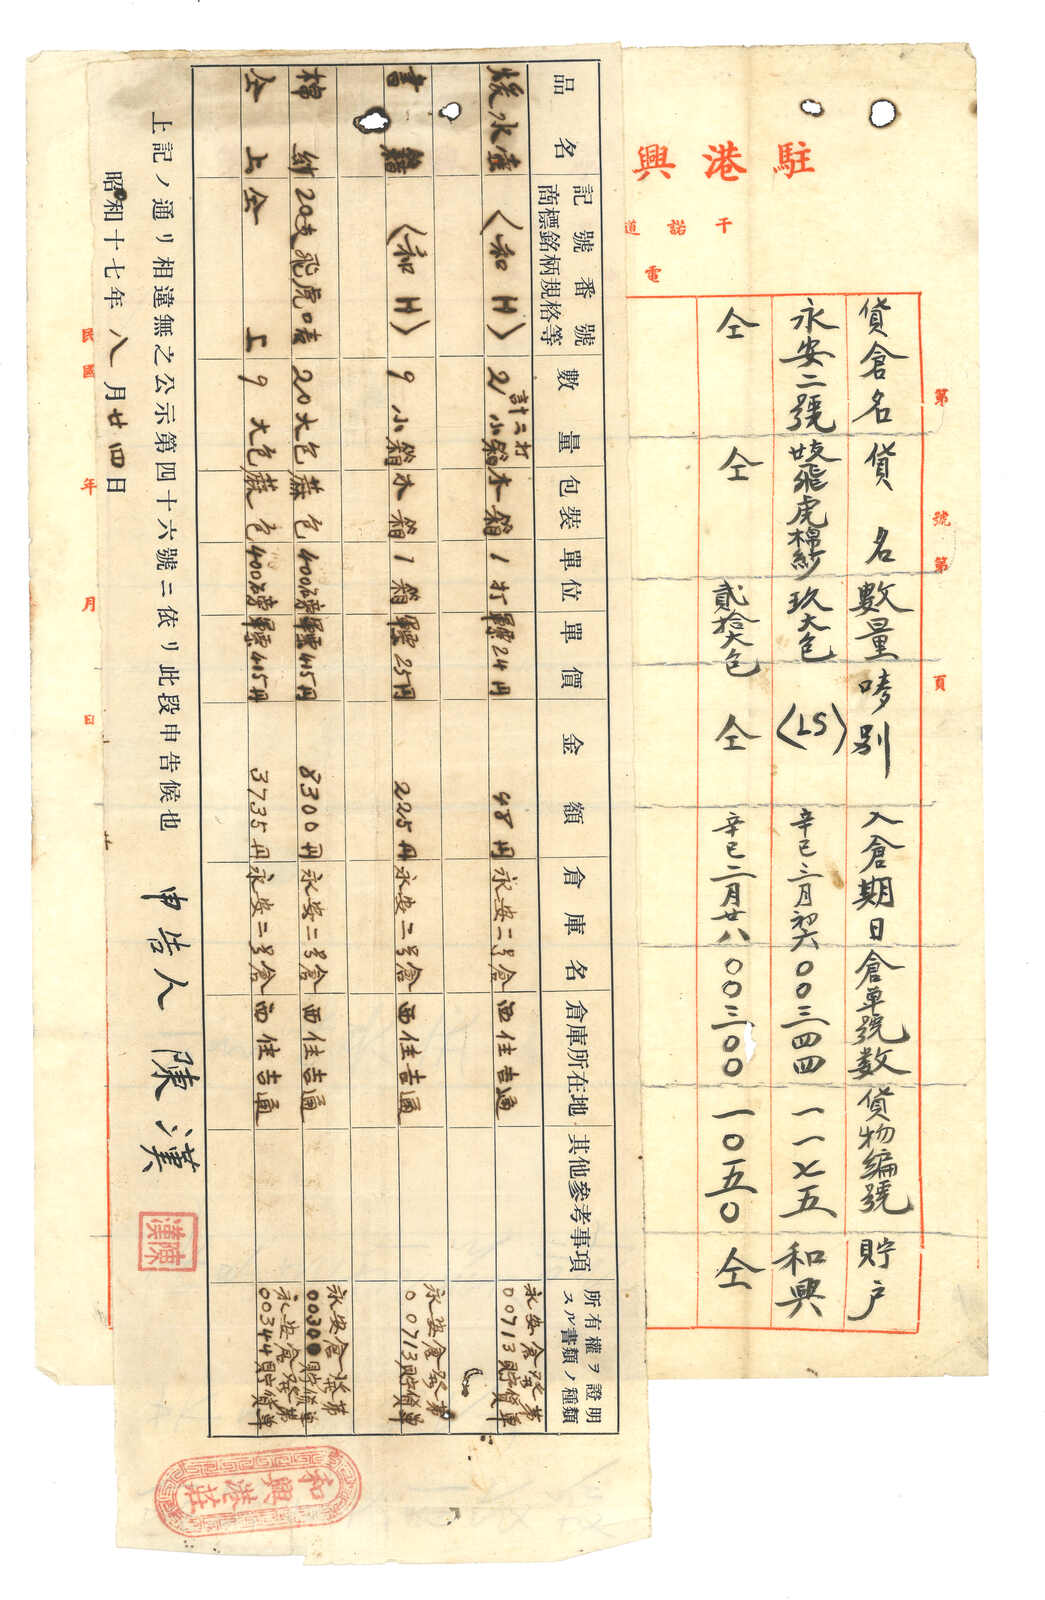 駐港興
干諾道
電
第 號 第 頁
貨倉名 貨名 數量 嘜別 入倉期日 倉單號數 貨物編號 貯戶
永安二號 廿支飛虎棉紗 玖大包 (LS) 辛巳三月初六 〇〇三四四 一一七五 和興
仝 仝 貳拾大包 仝 辛巳二月廿八 〇〇三〇〇 一〇五〇 仝
品名 記號番號商標銘柄規格等 數量 包裝 單位 單價 金額 倉庫名 倉庫所在地 其他參考事項 所有權ヲ證明スル書類ノ種類
煖水壺 (和H) 計二打 2小箱 木箱 1打 軍票24円 48円 永安二号倉 西住吉通 永安倉發第00713貯貨單
書籍 (和H) 9小箱 木箱 1箱 軍票25円 225円 永安二号倉 西住吉通 永安倉發第00713貯貨單
棉紗 20支飛虎嘜 20大包 蔴包 400磅 軍票415円 8300円 永安二号倉 西住吉通 永安倉發第00300貯貨單
仝上 仝上 9大包 蔴包 400磅 軍票415円 3735円 永安二号倉 西住吉通 永安倉發第00344貯貨單
上記ノ通リ相違無之公示第四十六號ニ依リ此段申告候也 申告人 陳漢
陳漢
昭和十七年八月廿四日
民國 年 月 日
和興港莊